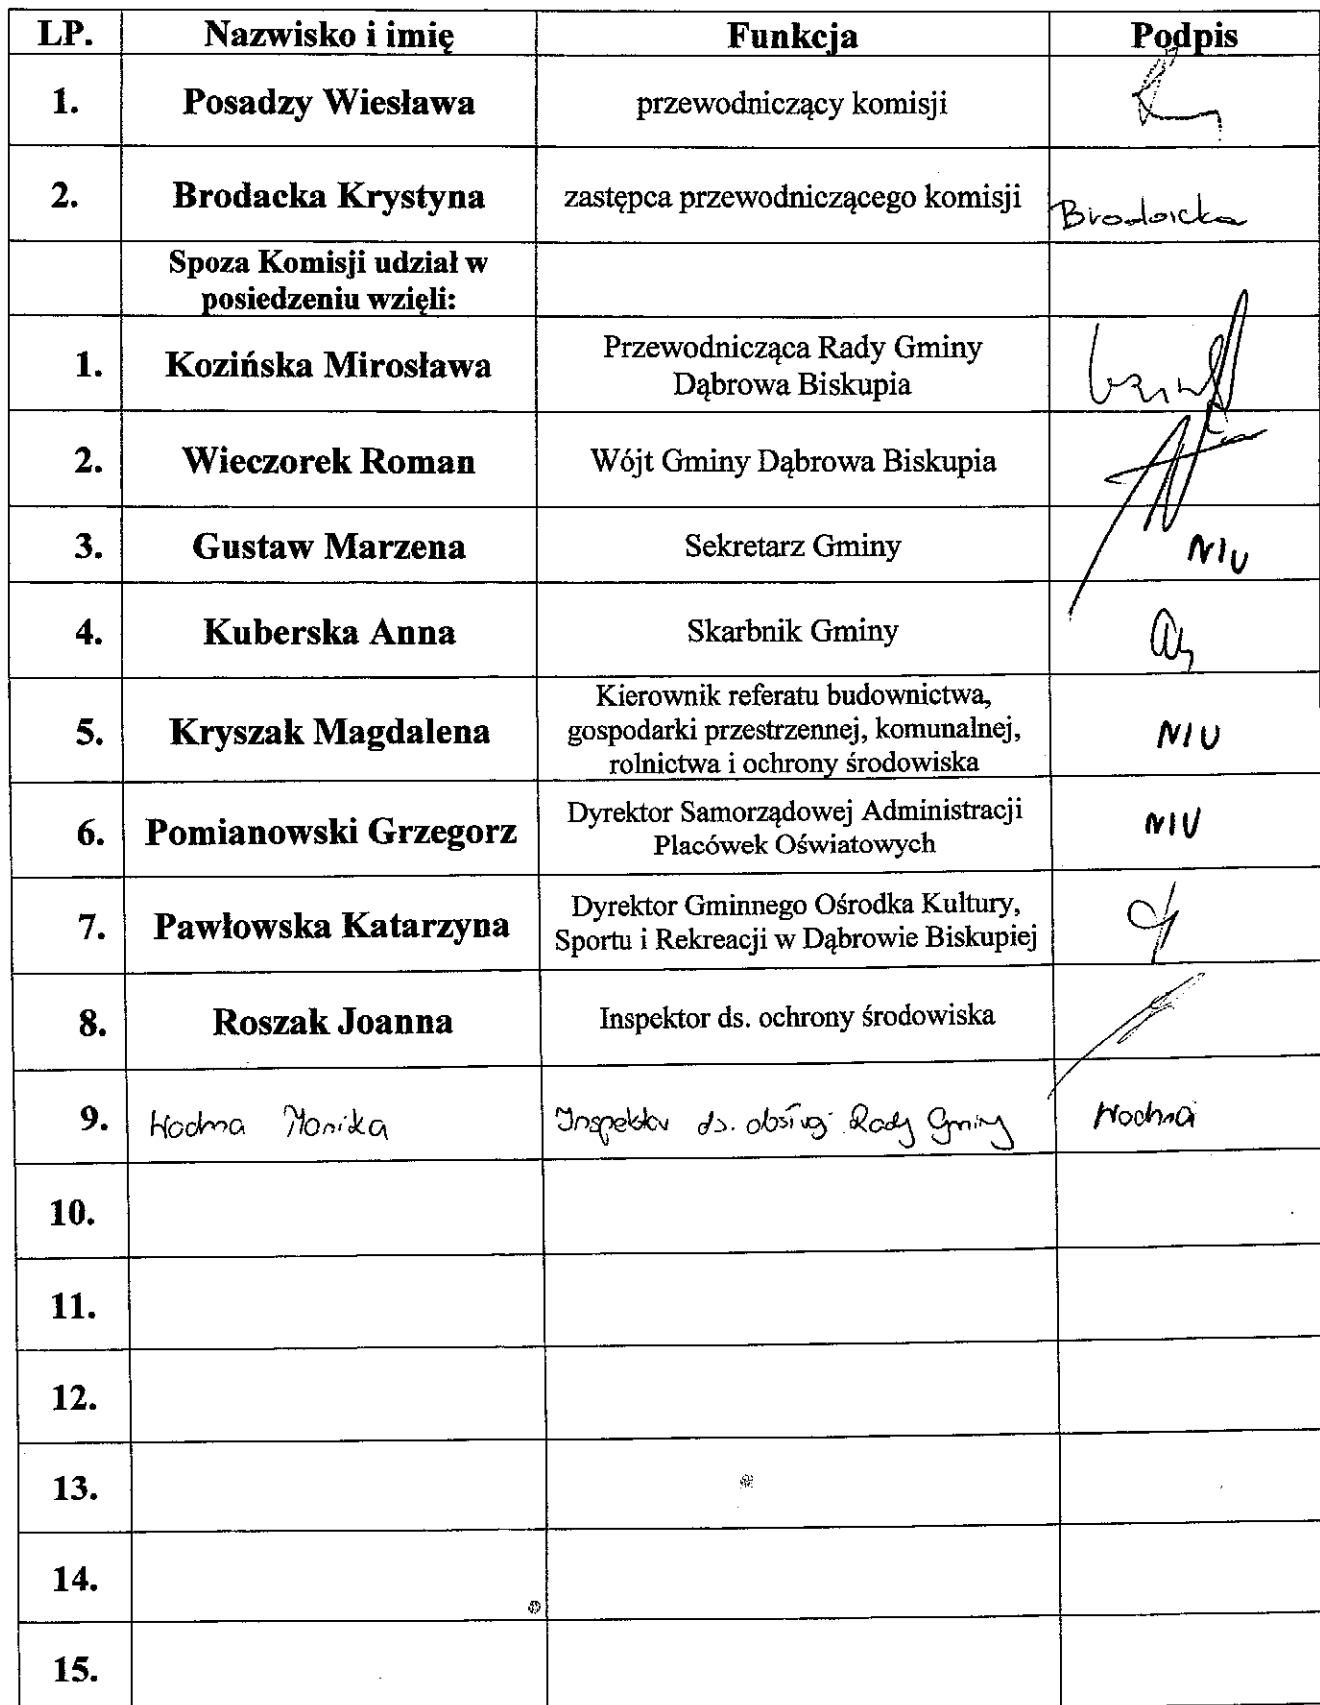 LP. Nazwisko i imię Funkcja Podpis
1. Posadzy Wiesława przewodniczący komisji
2. Brodacka Krystyna zastępca przewodniczącego komisji Brodacka
Spoza Komisji udział w
posiedzeniu wzięli:
1. Kozińska Mirosława Przewodnicząca Rady Gminy
Dąbrowa Biskupia
2. Wieczorek Roman Wójt Gminy Dąbrowa Biskupia
3. Gustaw Marzena Sekretarz Gminy NIU
4. Kuberska Anna Skarbnik Gminy
5. Kryszak Magdalena Kierownik referatu budownictwa,
gospodarki przestrzennej, komunalnej,
rolnictwa i ochrony środowiska NIU
6. Pomianowski Grzegorz Dyrektor Samorządowej Administracji
Placówek Oświatowych NIU
7. Pawłowska Katarzyna Dyrektor Gminnego Ośrodka Kultury,
Sportu i Rekreacji w Dąbrowie Biskupiej
8. Roszak Joanna Inspektor ds. ochrony środowiska
9. Monika Inspektor ds. obsługi Rady Gminy
10.
11.
12.
13.
14.
15.